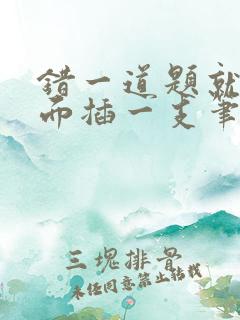 错一道题就
而插一支笔
三块排骨
未经同意禁止转载